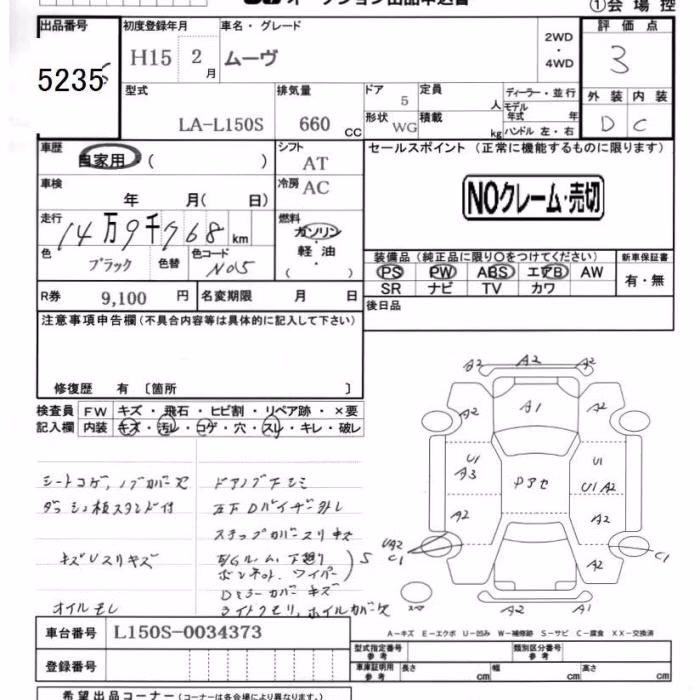 オークション出品申込書
①会場控
出品番号
5235
初度登録年月
H15 2月
車名・グレード
ムーヴ
2WD
・
4WD
評価点
3
型式
LA-L150S
排気量
660 CC
ドア 5
形状 WG
定員 人
積載 kg
ディーラー・並行
モデル年式 年
ハンドル 左・右
外装 内装
D C
車歴
自家用・( )
シフト
AT
セールスポイント (正常に機能するものに限ります)
車検
年 月( 日)
冷房 AC
NOクレーム・売切
走行
14万9千768km
燃料
ガソリン
・
軽油
( )
色
ブラック
色替
色コード
N05
装備品 (純正品に限り〇をつけてください)
新車保証書
PS PW ABS エアB AW
SR ナビ TV カワ
有・無
R券 9,100 円
名変期限 月 日
後日品
注意事項申告欄 (不具合内容等は具体的に記入して下さい)
修復歴 有 〔箇所 〕
検査員 FW キズ・飛石・ヒビ割・リペア跡・×要
記入欄 内装 キズ・汚レ・コゲ・穴・スレ・キレ・破レ
シートコゲ、ノブカバー欠
ダッシュ板スタンド付
キズUスリキズ
オイルモレ
ドアノブ下シミ
左下Dバイザー外レ
ステップカバースリキズ
E/Gルーム、下廻り
ボンネット、ワイパー
S
Dミラーカバーキズ
ライトクモリ、ホイルカバー欠
A2 A2 A2
A2 A1 A2
U1
A3
Pアセ
U1
U1 A2
A2 A2
UA2
C1
A2
C1
A2 A1
A-キズ E-エクボ U-凹み W-補修跡 S-サビ C-腐食 XX-交換済
車台番号 L150S-0034373
登録番号
型式指定番号
参考
類別区分番号
参考
車庫証明用
参考
長さ cm 幅 cm 高さ cm
希望出品コーナー (コーナーは各会場により異なります。)